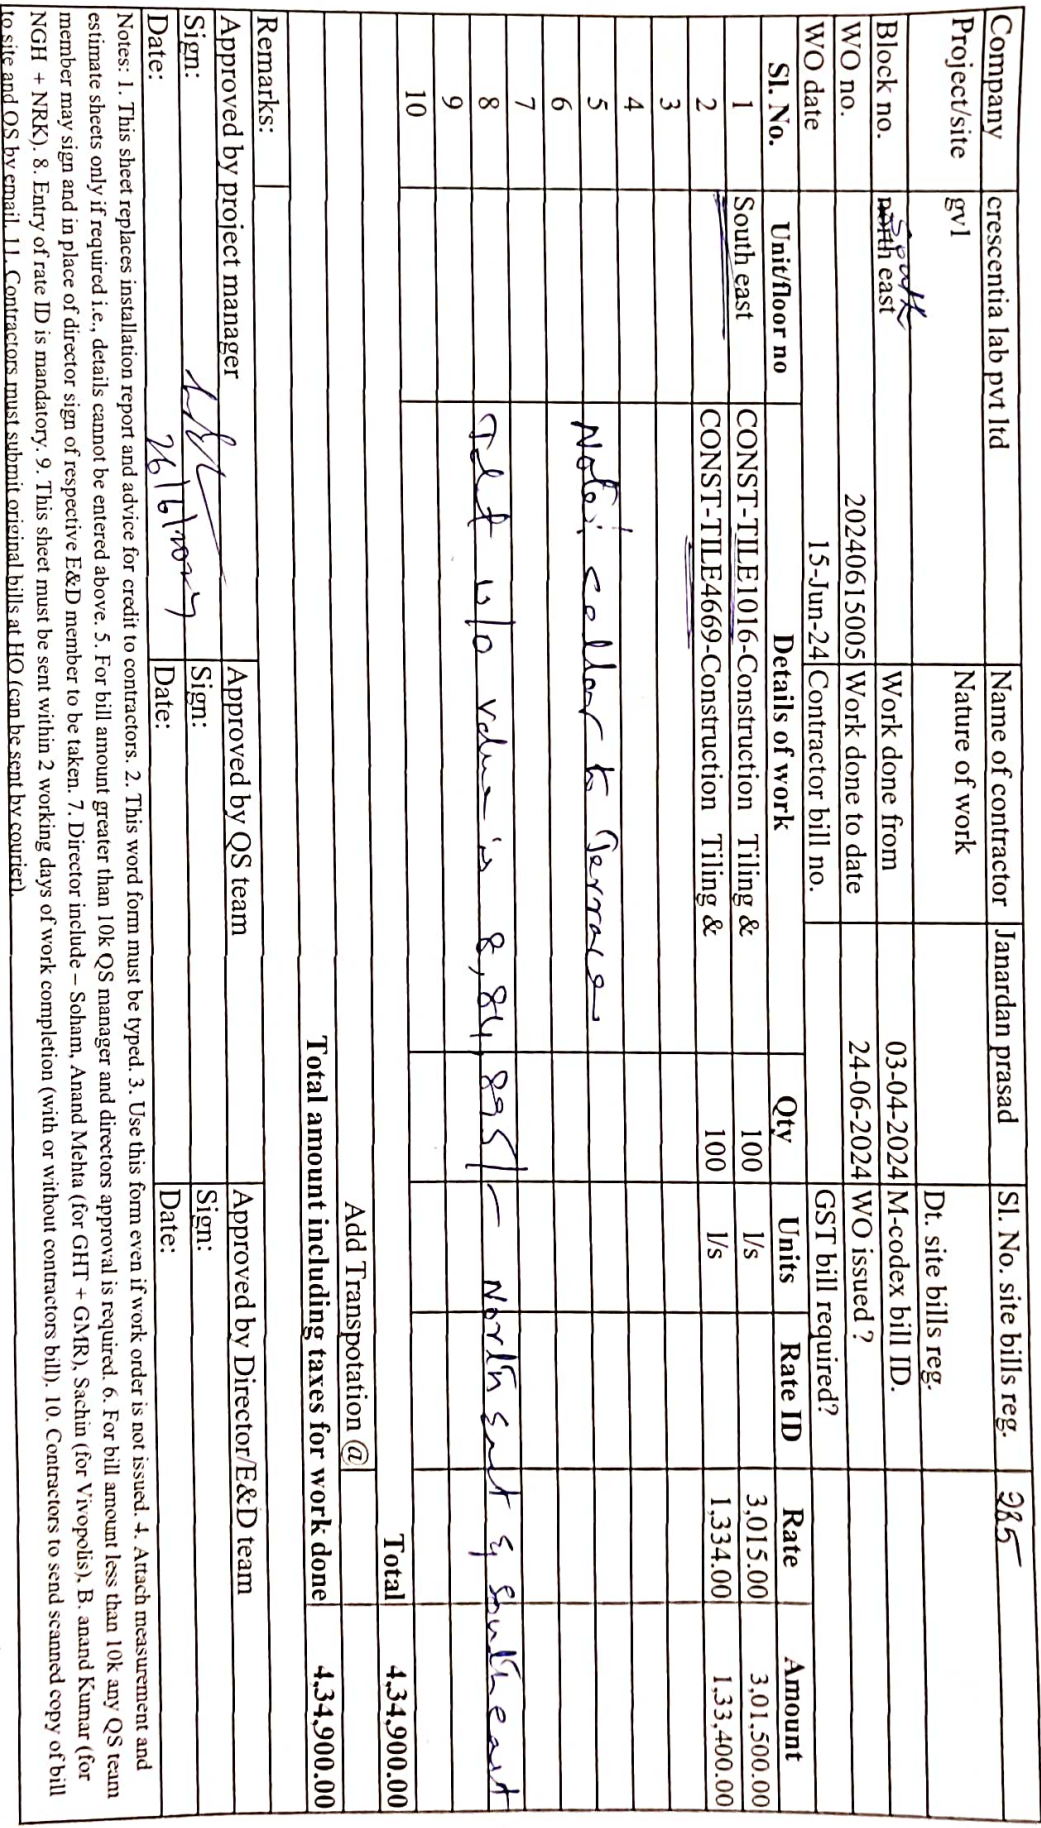 Company crescentia lab pvt ltd Name of contractor Janardan prasad Sl. No. site bills reg. 285
Project/site gv1 Nature of work Dt. site bills reg.
south
Block no. north east Work done from 03-04-2024 M-codex bill ID.
WO no. 20240615005 Work done to date 24-06-2024 WO issued ?
WO date 15-Jun-24 Contractor bill no. GST bill required?
Sl. No. Unit/floor no Details of work Qty Units Rate ID Rate Amount
1 South east CONST-TILE1016-Construction Tiling & 100 l/s 3,015.00 3,01,500.00
2 CONST-TILE4669-Construction Tiling & 100 l/s 1,334.00 1,33,400.00
3
4
5 Note: cellar to Terrace
6
7
8 w/o value is 8,84,895/- North east & South east
9
10
Total 4,34,900.00
Add Transpotation @
Total amount including taxes for work done 4,34,900.00
Remarks:
Approved by project manager Approved by QS team Approved by Director/E&D team
Sign: Sign: Sign:
Date: 26/6/2024 Date: Date:
Notes: 1. This sheet replaces installation report and advice for credit to contractors. 2. This word form must be typed. 3. Use this form even if work order is not issued. 4. Attach measurement and
estimate sheets only if required i.e., details cannot be entered above. 5. For bill amount greater than 10k QS manager and directors approval is required. 6. For bill amount less than 10k any QS team
member may sign and in place of director sign of respective E&D member to be taken. 7. Director include – Soham, Anand Mehta (for GHT + GMR), Sachin (for Vivopolis), B. anand Kumar (for
NGH + NRK). 8. Entry of rate ID is mandatory. 9. This sheet must be sent within 2 working days of work completion (with or without contractors bill). 10. Contractors to send scanned copy of bill
to site and QS by email. 11. Contractors must submit original bills at HO (can be sent by courier).